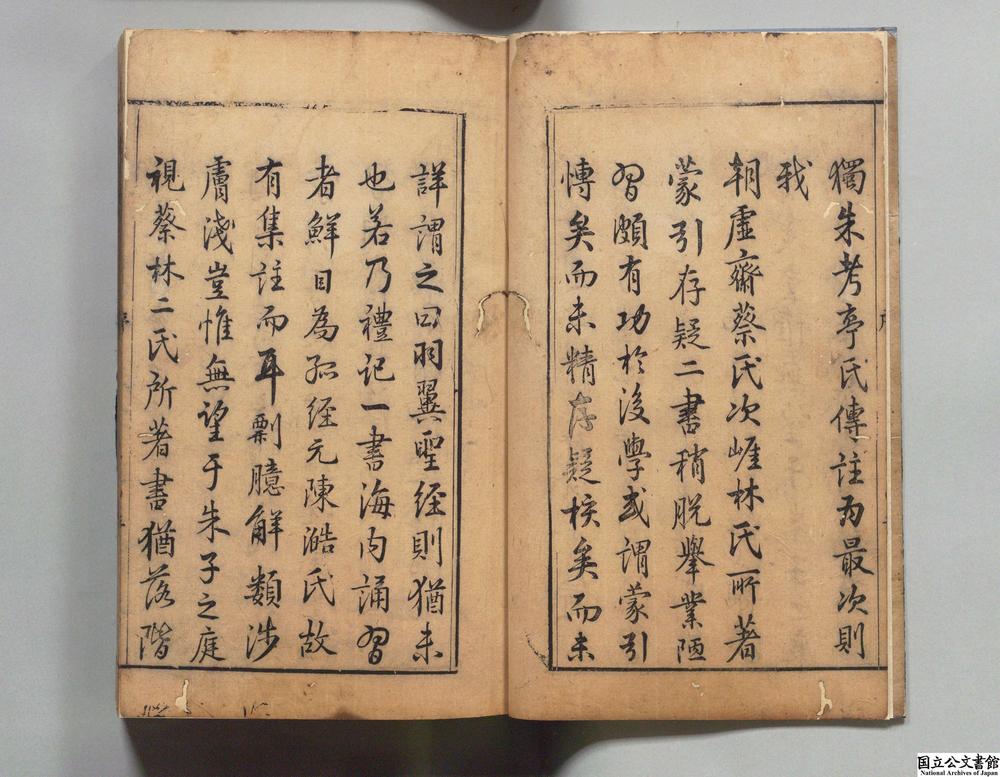 獨朱考亭氏傳註為最次則
我
朝虛齋蔡氏次崕林氏所著
蒙引存疑二書稍脫舉業陋
習頗有功於後學或謂蒙引
慱矣而未精存疑核矣而未
詳謂之曰羽翼聖經則猶未
也若乃禮記一書海內誦習
者鮮目為孤經元陳澔氏故
有集註而耳剽臆解類涉
膚淺豈惟無望于朱子之庭
視蔡林二氏所著書猶落階
国立公文書館
National Archives of Japan